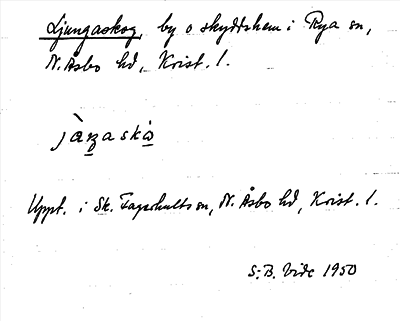 Ljungaskog, by o skyddshem i Rya sn,
N. Åsbo hd, Krist. l.
Uppt. i Sk. Fagerhults sn, N. Åsbo hd, Krist. l.
S. B. Vide 1950